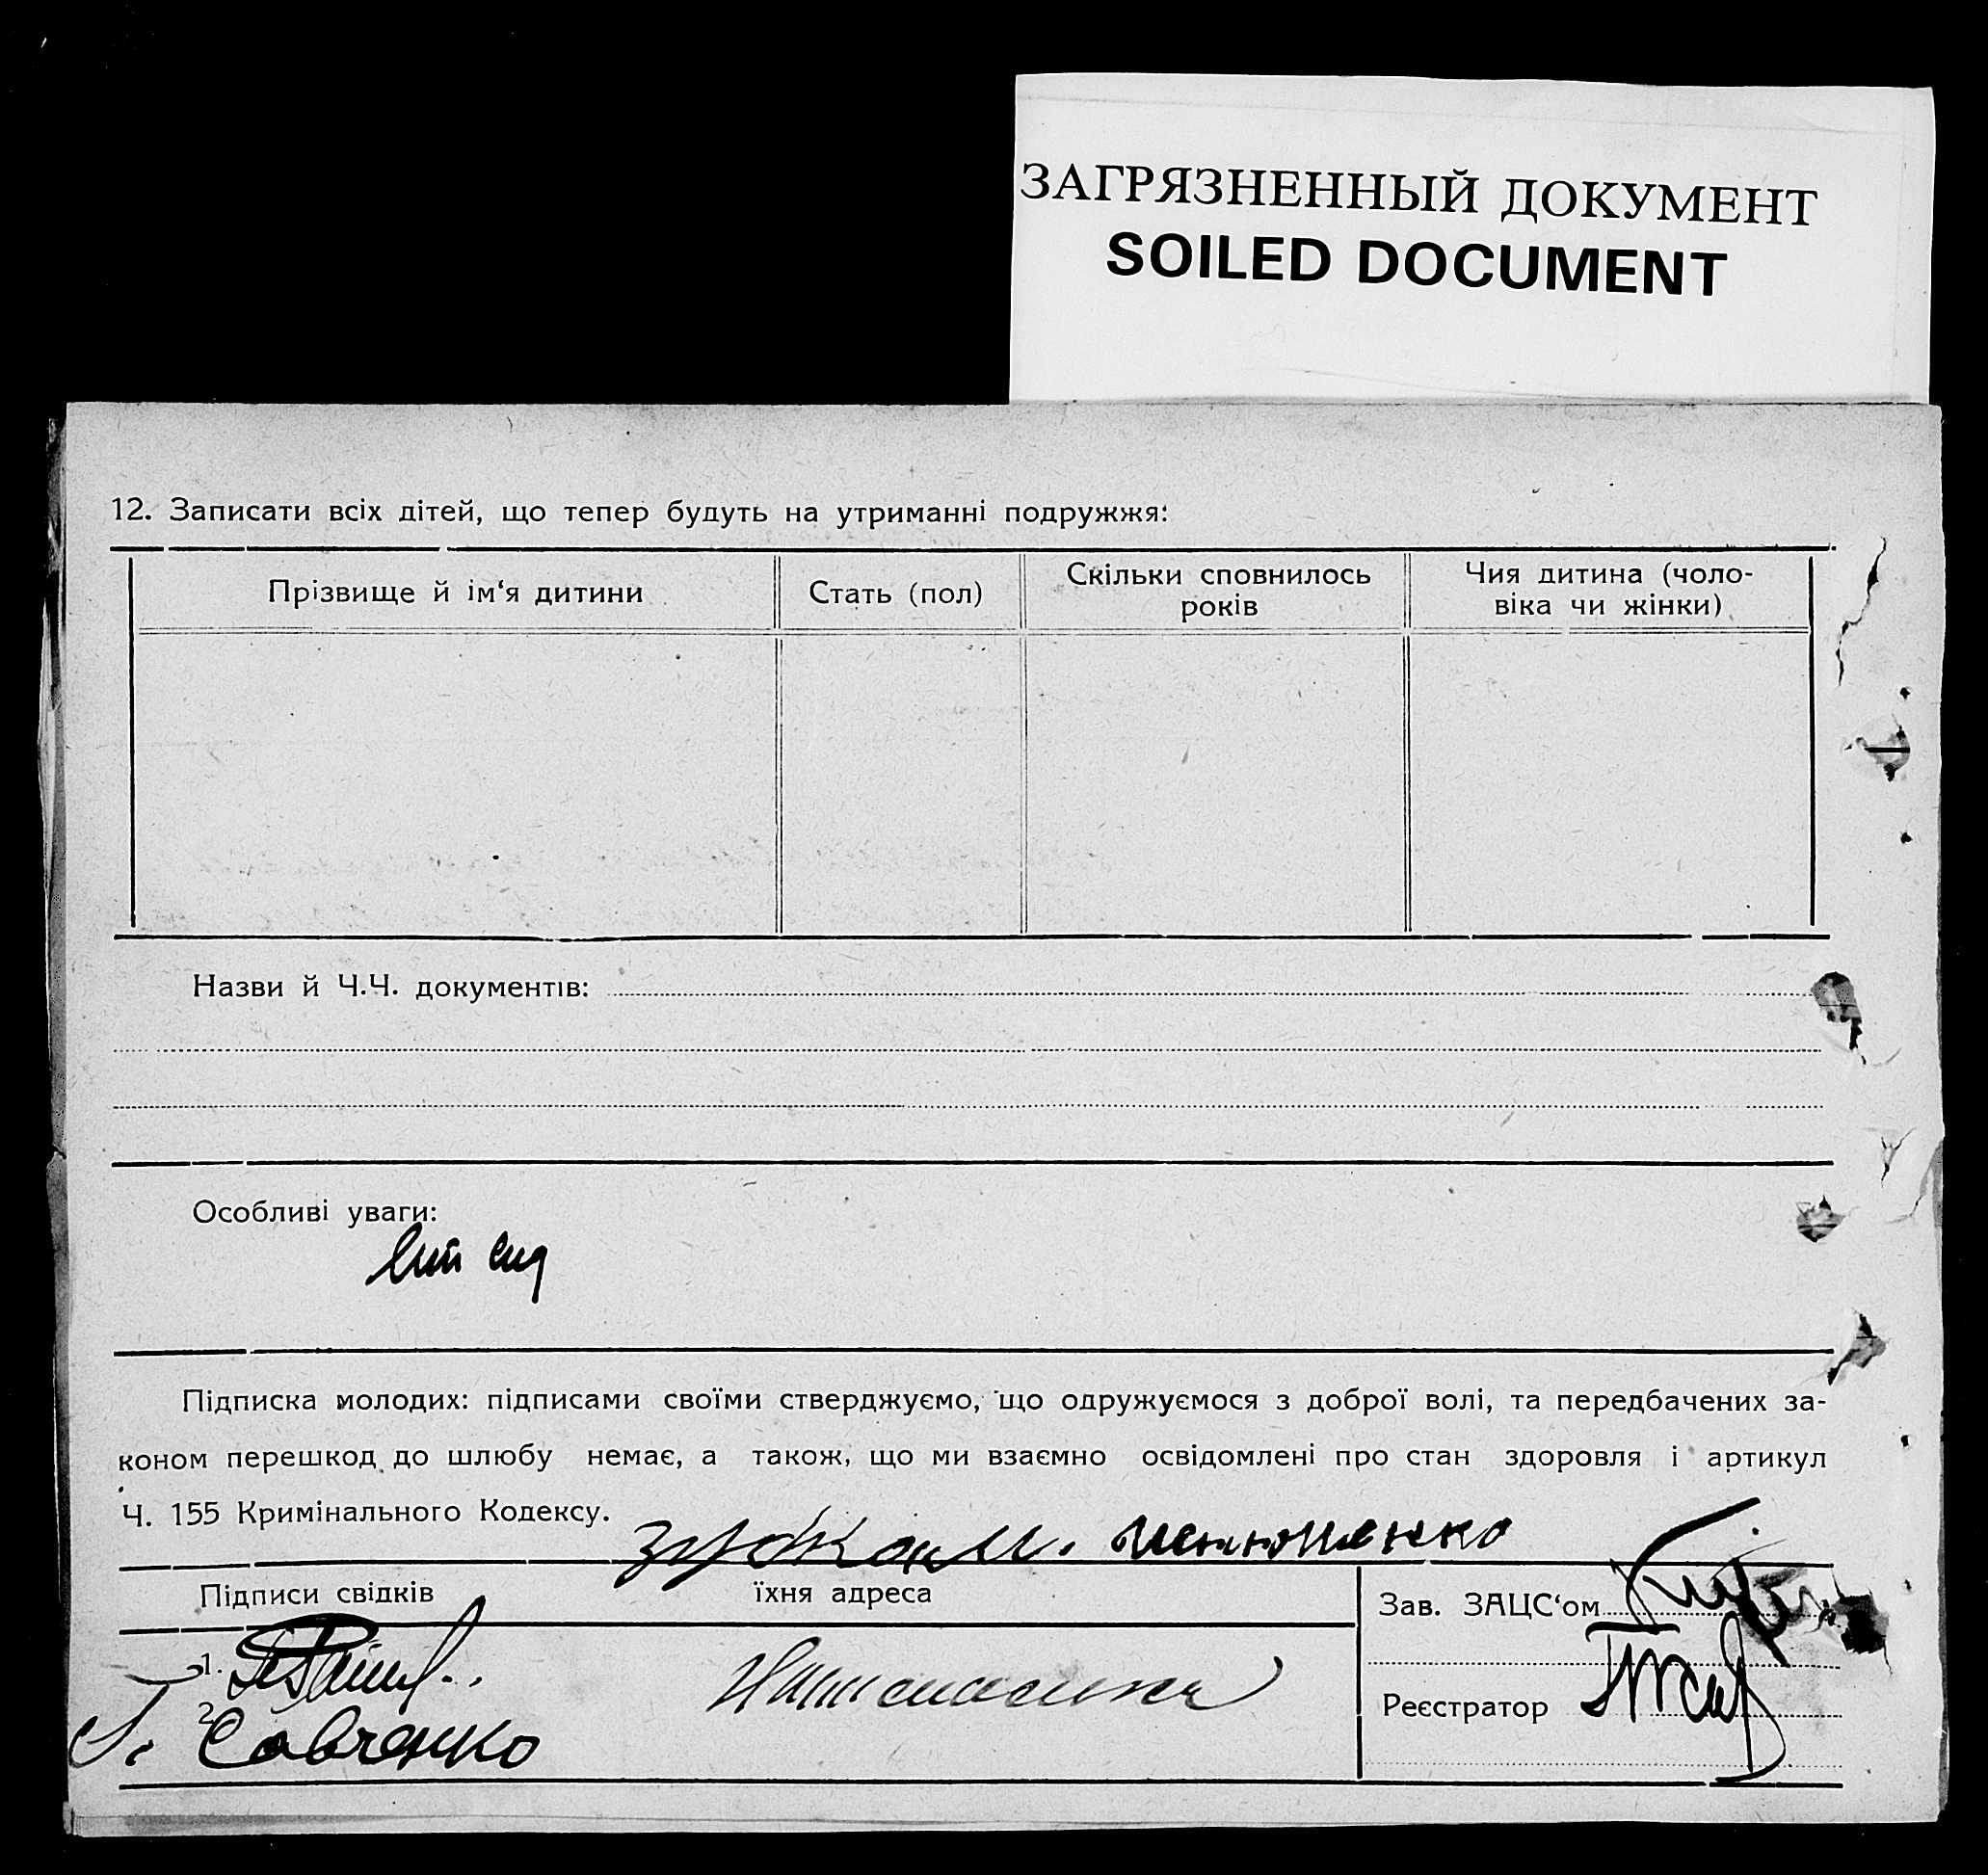 ЗАГРЯЗНЕННЫЙ ДОКУМЕНТ
SOILED DOCUMENT
12. Записати всіх дітей, що тепер будуть на утриманні подружжя:
Прізвище й ім‘я дитини
Стать (пол)
Скільки сповнилось
років
Чия дитина (чоло-
віка чи жінки)
Назви й Ч.Ч. документів:
Особливі уваги:
Підписка молодих: підписами своїми стверджуємо, що одружуємося з доброї волі, та передбачених за-
коном перешкод до шлюбу немає, а також, що ми взаємно освідомлені про стан здоровля і артикул
Ч. 155 Кримінального Кодексу.
Підписи свідків
їхня адреса
Зав. ЗАЦС‘ом
1.
2.
Савченко
Реєстратор